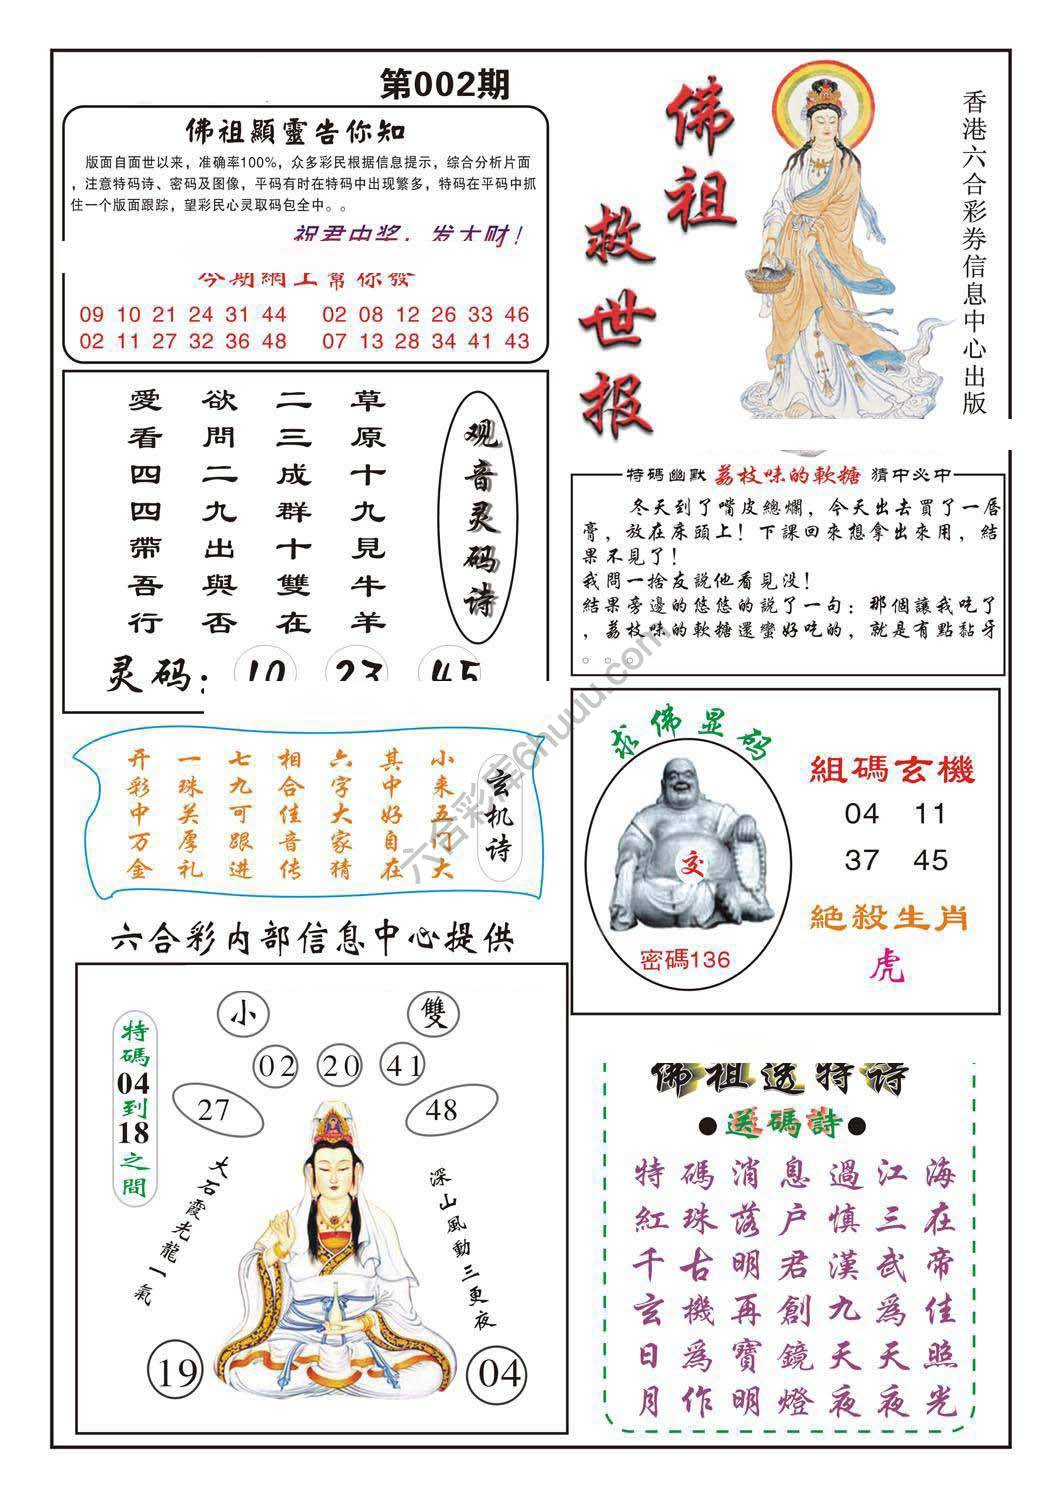 第002期
佛祖顯靈告你知
版面自面世以来，准确率100%，众多彩民根据信息提示，综合分析片面
，注意特码诗、密码及图像，平码有时在特码中出现繁多，特码在平码中抓
住一个版面跟踪，望彩民心灵取码包全中。。
祝君中奖，发大财！
今期網上幫你發
09 10 21 24 31 44 02 08 12 26 33 46
02 11 27 32 36 48 07 13 28 34 41 43
佛祖
救世报
香港六合彩券信息中心出版
观音灵码诗
草原十九見牛羊
二三成群十雙在
欲問二九出與否
愛看四四帶吾行
灵码：10 23 45
特碼幽默 荔枝味的軟糖 猜中必中
冬天到了嘴皮總爛，今天出去買了一唇
膏，放在床頭上！下課回來想拿出來用，結
果不見了！
我問一捨友説他看見没！
結果旁邊的悠悠的説了一句：那個讓我吃了
，荔枝味的軟糖還蠻好吃的，就是有點黏牙
。。。。
玄机诗
小来五行大
其中好自在
六字大家猜
相合佳音传
七九可跟进
一珠关厚礼
开彩中万金
求佛显码
交
密碼136
組碼玄機
04 11
37 45
絶殺生肖
虎
六合彩内部信息中心提供
特碼04到18之間
小 雙
02 20 41
27 48
大石霞光龍一氣
深山風動三更夜
19 04
佛祖透特诗
●送碼詩●
特碼消息過江海
紅珠落户慎三在
千古明君漢武帝
玄機再創九爲佳
日爲寶鏡天天照
月作明燈夜夜光
六合彩库6huuu.com